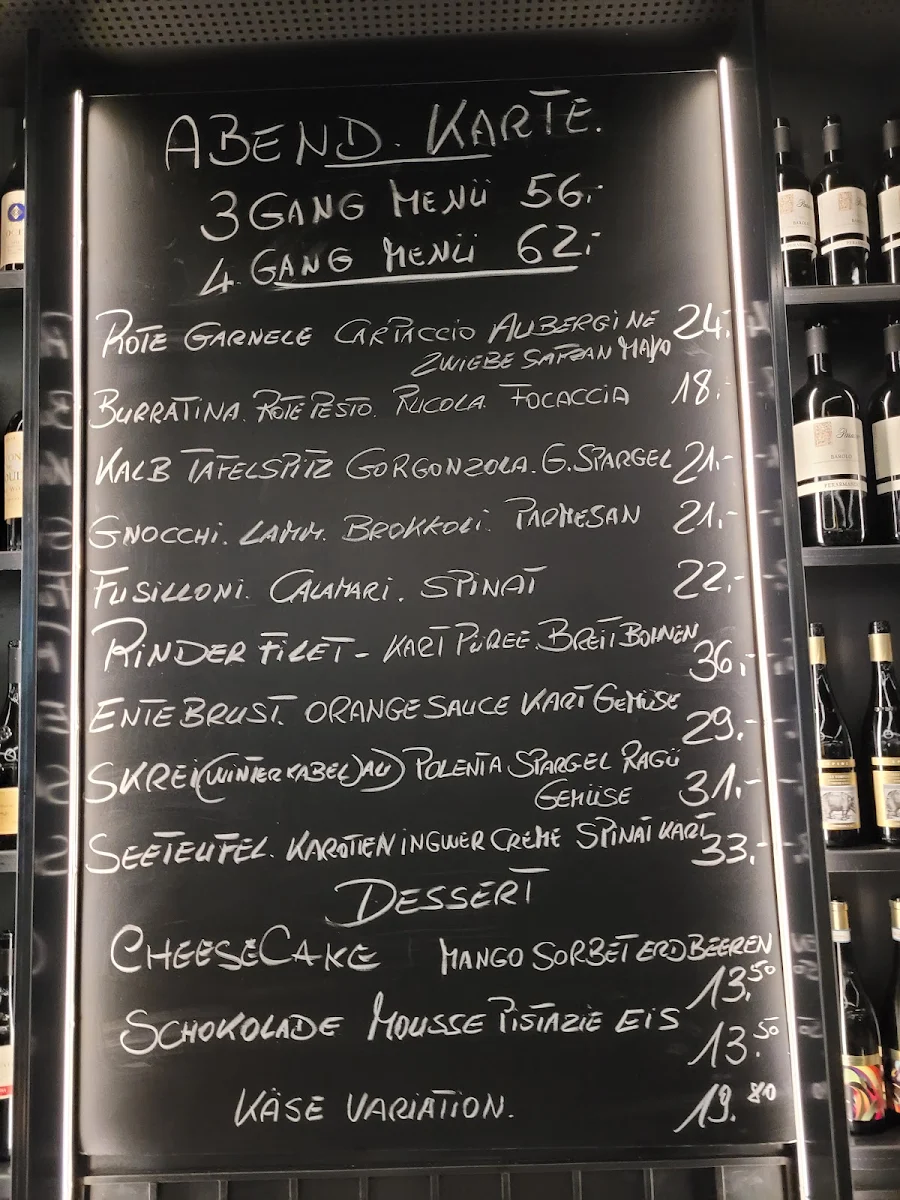 ABEND. KARTE.
3 GANG MENÜ 56.-
4. GANG MENÜ 62.-
ROTE GARNELE CARPACCIO AUBERGINE 24.-
ZWIEBE SAFRAN MAYO
BURRATINA. ROTE PESTO. RUCOLA. FOCACCIA 18.-
KALB TAFELSPITZ GORGONZOLA. G. SPARGEL 21.-
GNOCCHI. LAMM. BROKKOLI. PARMESAN 21.-
FUSILLONI. CALAMARI. SPINAT 22.-
RINDER FILET - KART PÜREE. BREIT BOHNEN
36.-
ENTE BRUST. ORANGE SAUCE KART GEMÜSE
29.-
SKREI (WINTER KABELJAU) POLENTA SPARGEL RAGÜ
GEMÜSE 31.-
SEETEUFEL. KAROTTEN INGWER CREME SPINAT KART
33.-
DESSERT
CHEESECAKE MANGO SORBET ERDBEEREN
13.50
SCHOKOLADE MOUSSE PISTAZIE EIS
13.50
KÄSE VARIATION. 19.80
BAROLO